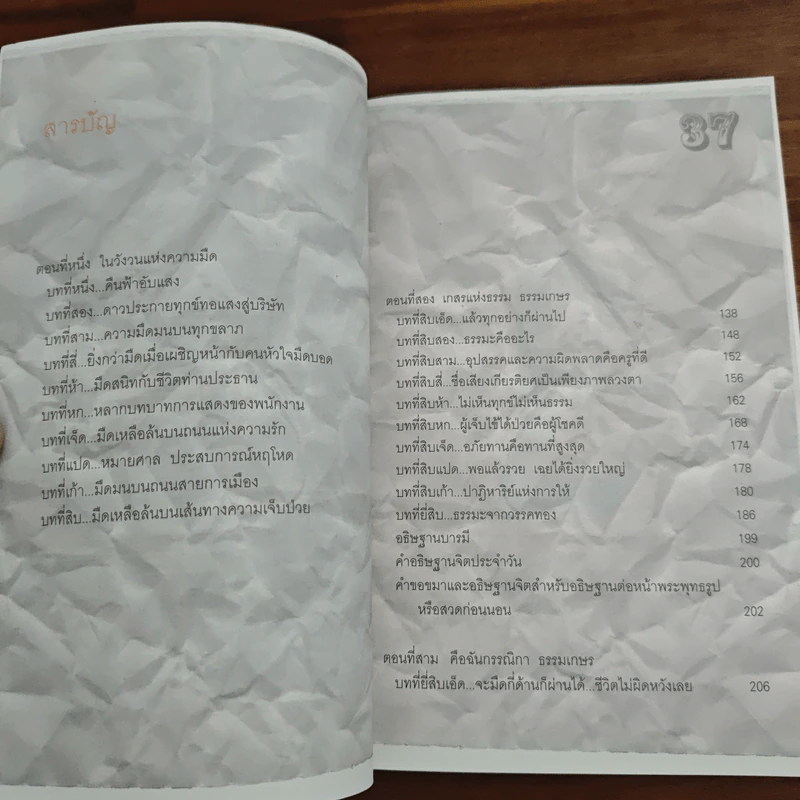 สารบัญ
ตอนที่หนึ่ง ในวังวนแห่งความมืด
บทที่หนึ่ง...คืนฟ้าอับแสง
บทที่สอง...ดาวประกายทุกข์ทอแสงสู่บริษัท
บทที่สาม...ความมืดมนบนทุกขลาภ
บทที่สี่...ยิ่งกว่ามืดเมื่อเผชิญหน้ากับคนหัวใจมืดบอด
บทที่ห้า...มืดสนิทกับชีวิตท่านประธาน
บทที่หก...หลากบทบาทการแสดงของพนักงาน
บทที่เจ็ด...มืดเหลือล้นบนถนนแห่งความรัก
บทที่แปด...หมายศาล ประสบการณ์หฤโหด
บทที่เก้า...มืดมนบนถนนสายการเมือง
บทที่สิบ...มืดเหลือล้นบนเส้นทางความเจ็บป่วย
37
ตอนที่สอง เกสรแห่งธรรม ธรรมเกษร
บทที่สิบเอ็ด...แล้วทุกอย่างก็ผ่านไป 138
บทที่สิบสอง...ธรรมะคืออะไร 148
บทที่สิบสาม...อุปสรรคและความผิดพลาดคือครูที่ดี 152
บทที่สิบสี่...ชื่อเสียงเกียรติยศเป็นเพียงภาพลวงตา 156
บทที่สิบห้า...ไม่เห็นทุกข์ไม่เห็นธรรม 162
บทที่สิบหก...ผู้เจ็บไข้ได้ป่วยคือผู้โชคดี 168
บทที่สิบเจ็ด...อภัยทานคือทานที่สูงสุด 174
บทที่สิบแปด...พอแล้วรวย เฉยได้ยิ่งรวยใหญ่ 178
บทที่สิบเก้า...ปาฏิหาริย์แห่งการให้ 180
บทที่ยี่สิบ...ธรรมะจากวรรคทอง 186
อธิษฐานบารมี 199
คำอธิษฐานจิตประจำวัน 200
คำขอขมาและอธิษฐานจิตสำหรับอธิษฐานต่อหน้าพระพุทธรูป
หรือสวดก่อนนอน 202
ตอนที่สาม คือฉันกรรณิกา ธรรมเกษร
บทที่ยี่สิบเอ็ด...จะมืดกี่ด้านก็ผ่านได้...ชีวิตไม่ผิดหวังเลย 206